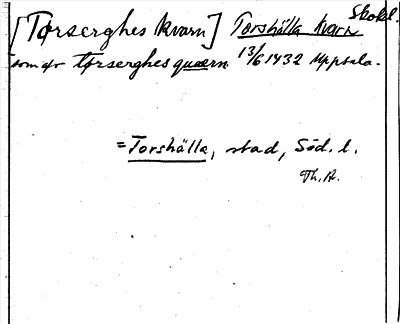 Skokl.
[Torserghes kvarn] Torshälla kvarn
som qv torserghes quærn 13/6 1432 Uppsala.
= Torshälla, stad, Söd. l.
Th. A.